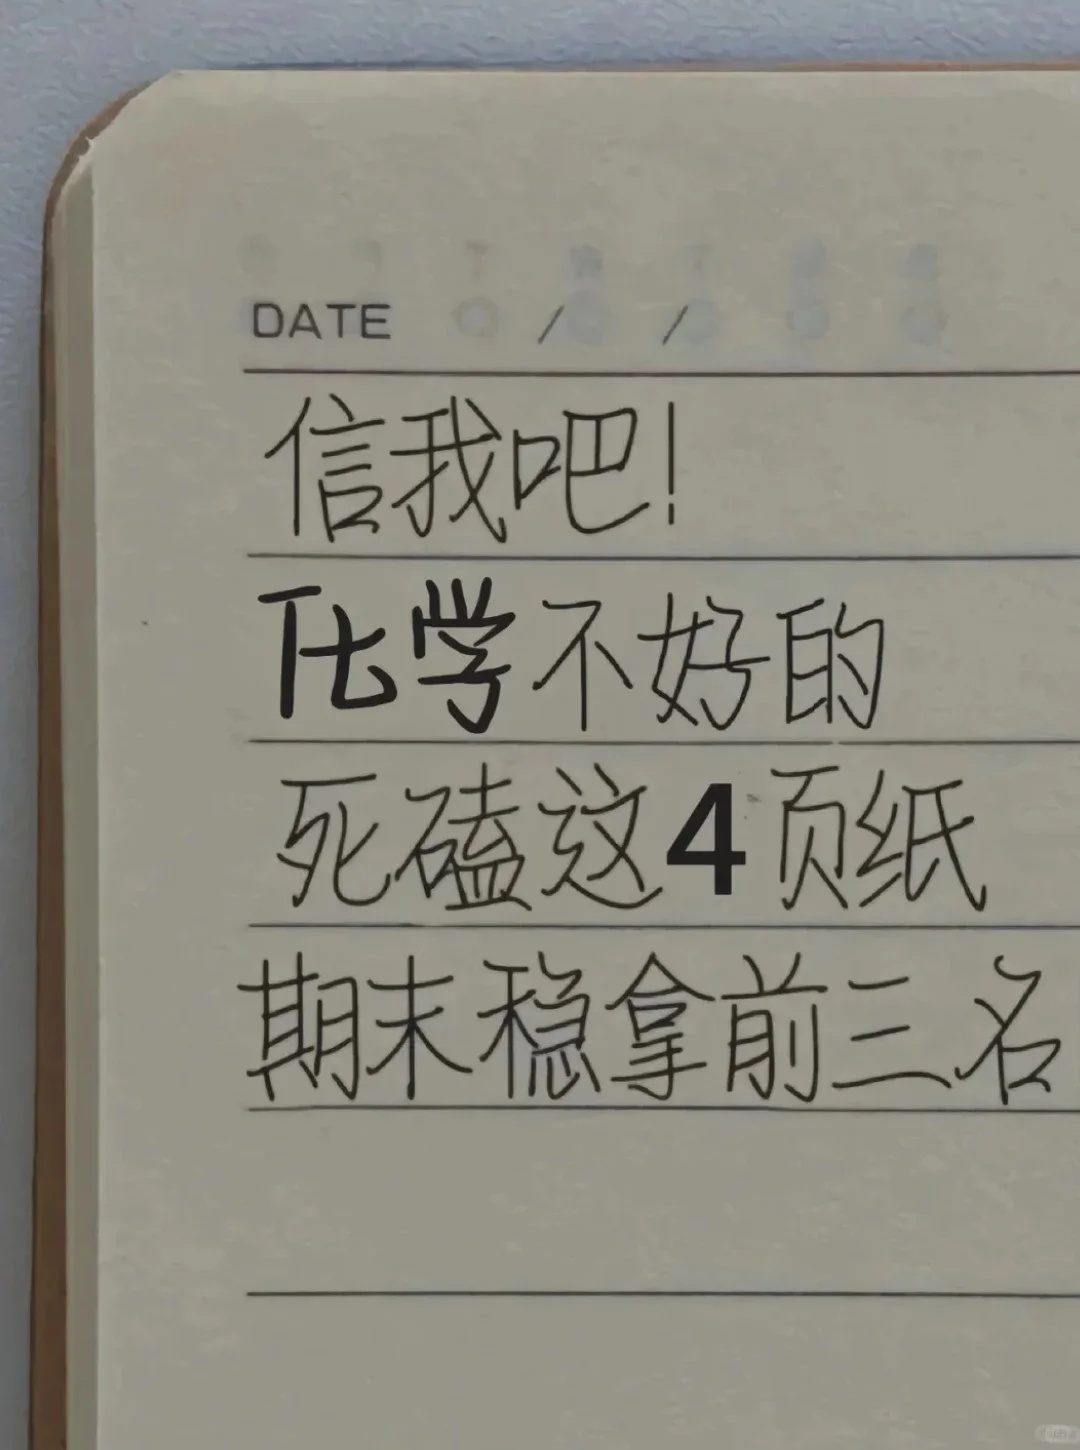 DATE / /
信我吧!
化学不好的
死磕这4页纸
期末稳拿前三名